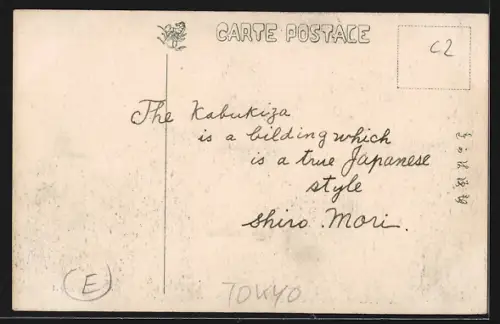 CARTE POSTALE
C2
The Kabukiza
is a bilding which
is a true Japanese
style
Shiro Mori.
E
TOKYO